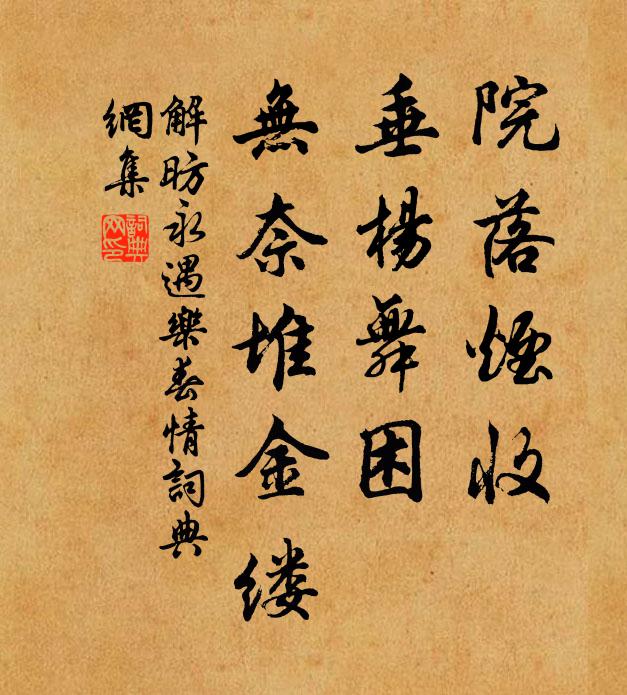 院落煙收
垂楊舞困
無奈堆金缕
解昉永遇樂春情詞典
網集
詞典
网印